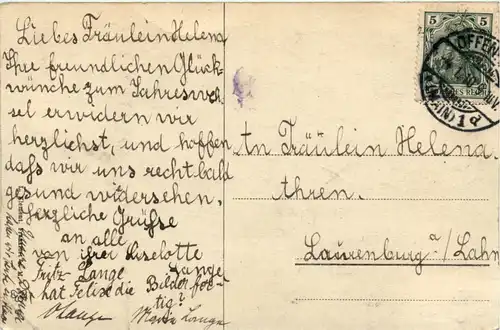 Liebes Fräulein Helena
Ihre freundlichen Glück-
wünche zum Jahreswech-
sel erwidern wir
herzlichst, und hoffen
daß wir uns recht bald
gesund widersehen.
Herzliche Grüße
an alle
von ihrer Liselotte
Fritz Lange Lange
hat Felix die Bilder fer-
tig?
Maria Lange
5
OFFENB
(MAIN) 1d
An Fräulein Helena
Ahren.
Laurenburg a/Lahn